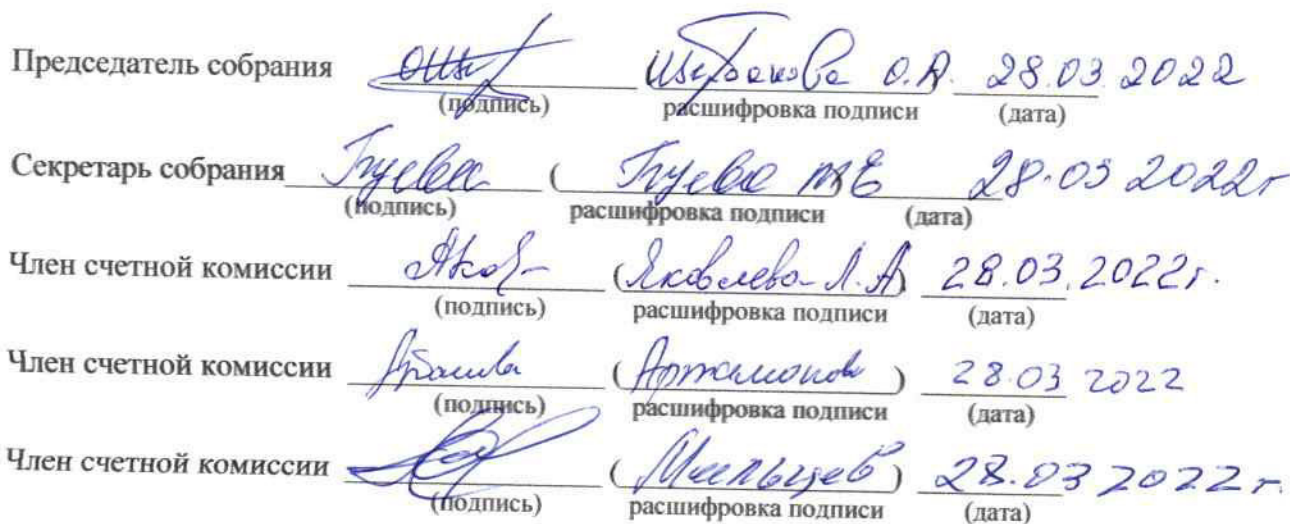 Председатель собрания Щербакова О.А. 28.03.2022
(подпись) расшифровка подписи (дата)
Секретарь собрания ( ) 28.03 2022г
(подпись) расшифровка подписи (дата)
Член счетной комиссии (Яковлева Л.А) 28.03.2022г.
(подпись) расшифровка подписи (дата)
Член счетной комиссии (Артамонова) 28.03 2022
(подпись) расшифровка подписи (дата)
Член счетной комиссии ( ) 28.03 2022г.
(подпись) расшифровка подписи (дата)